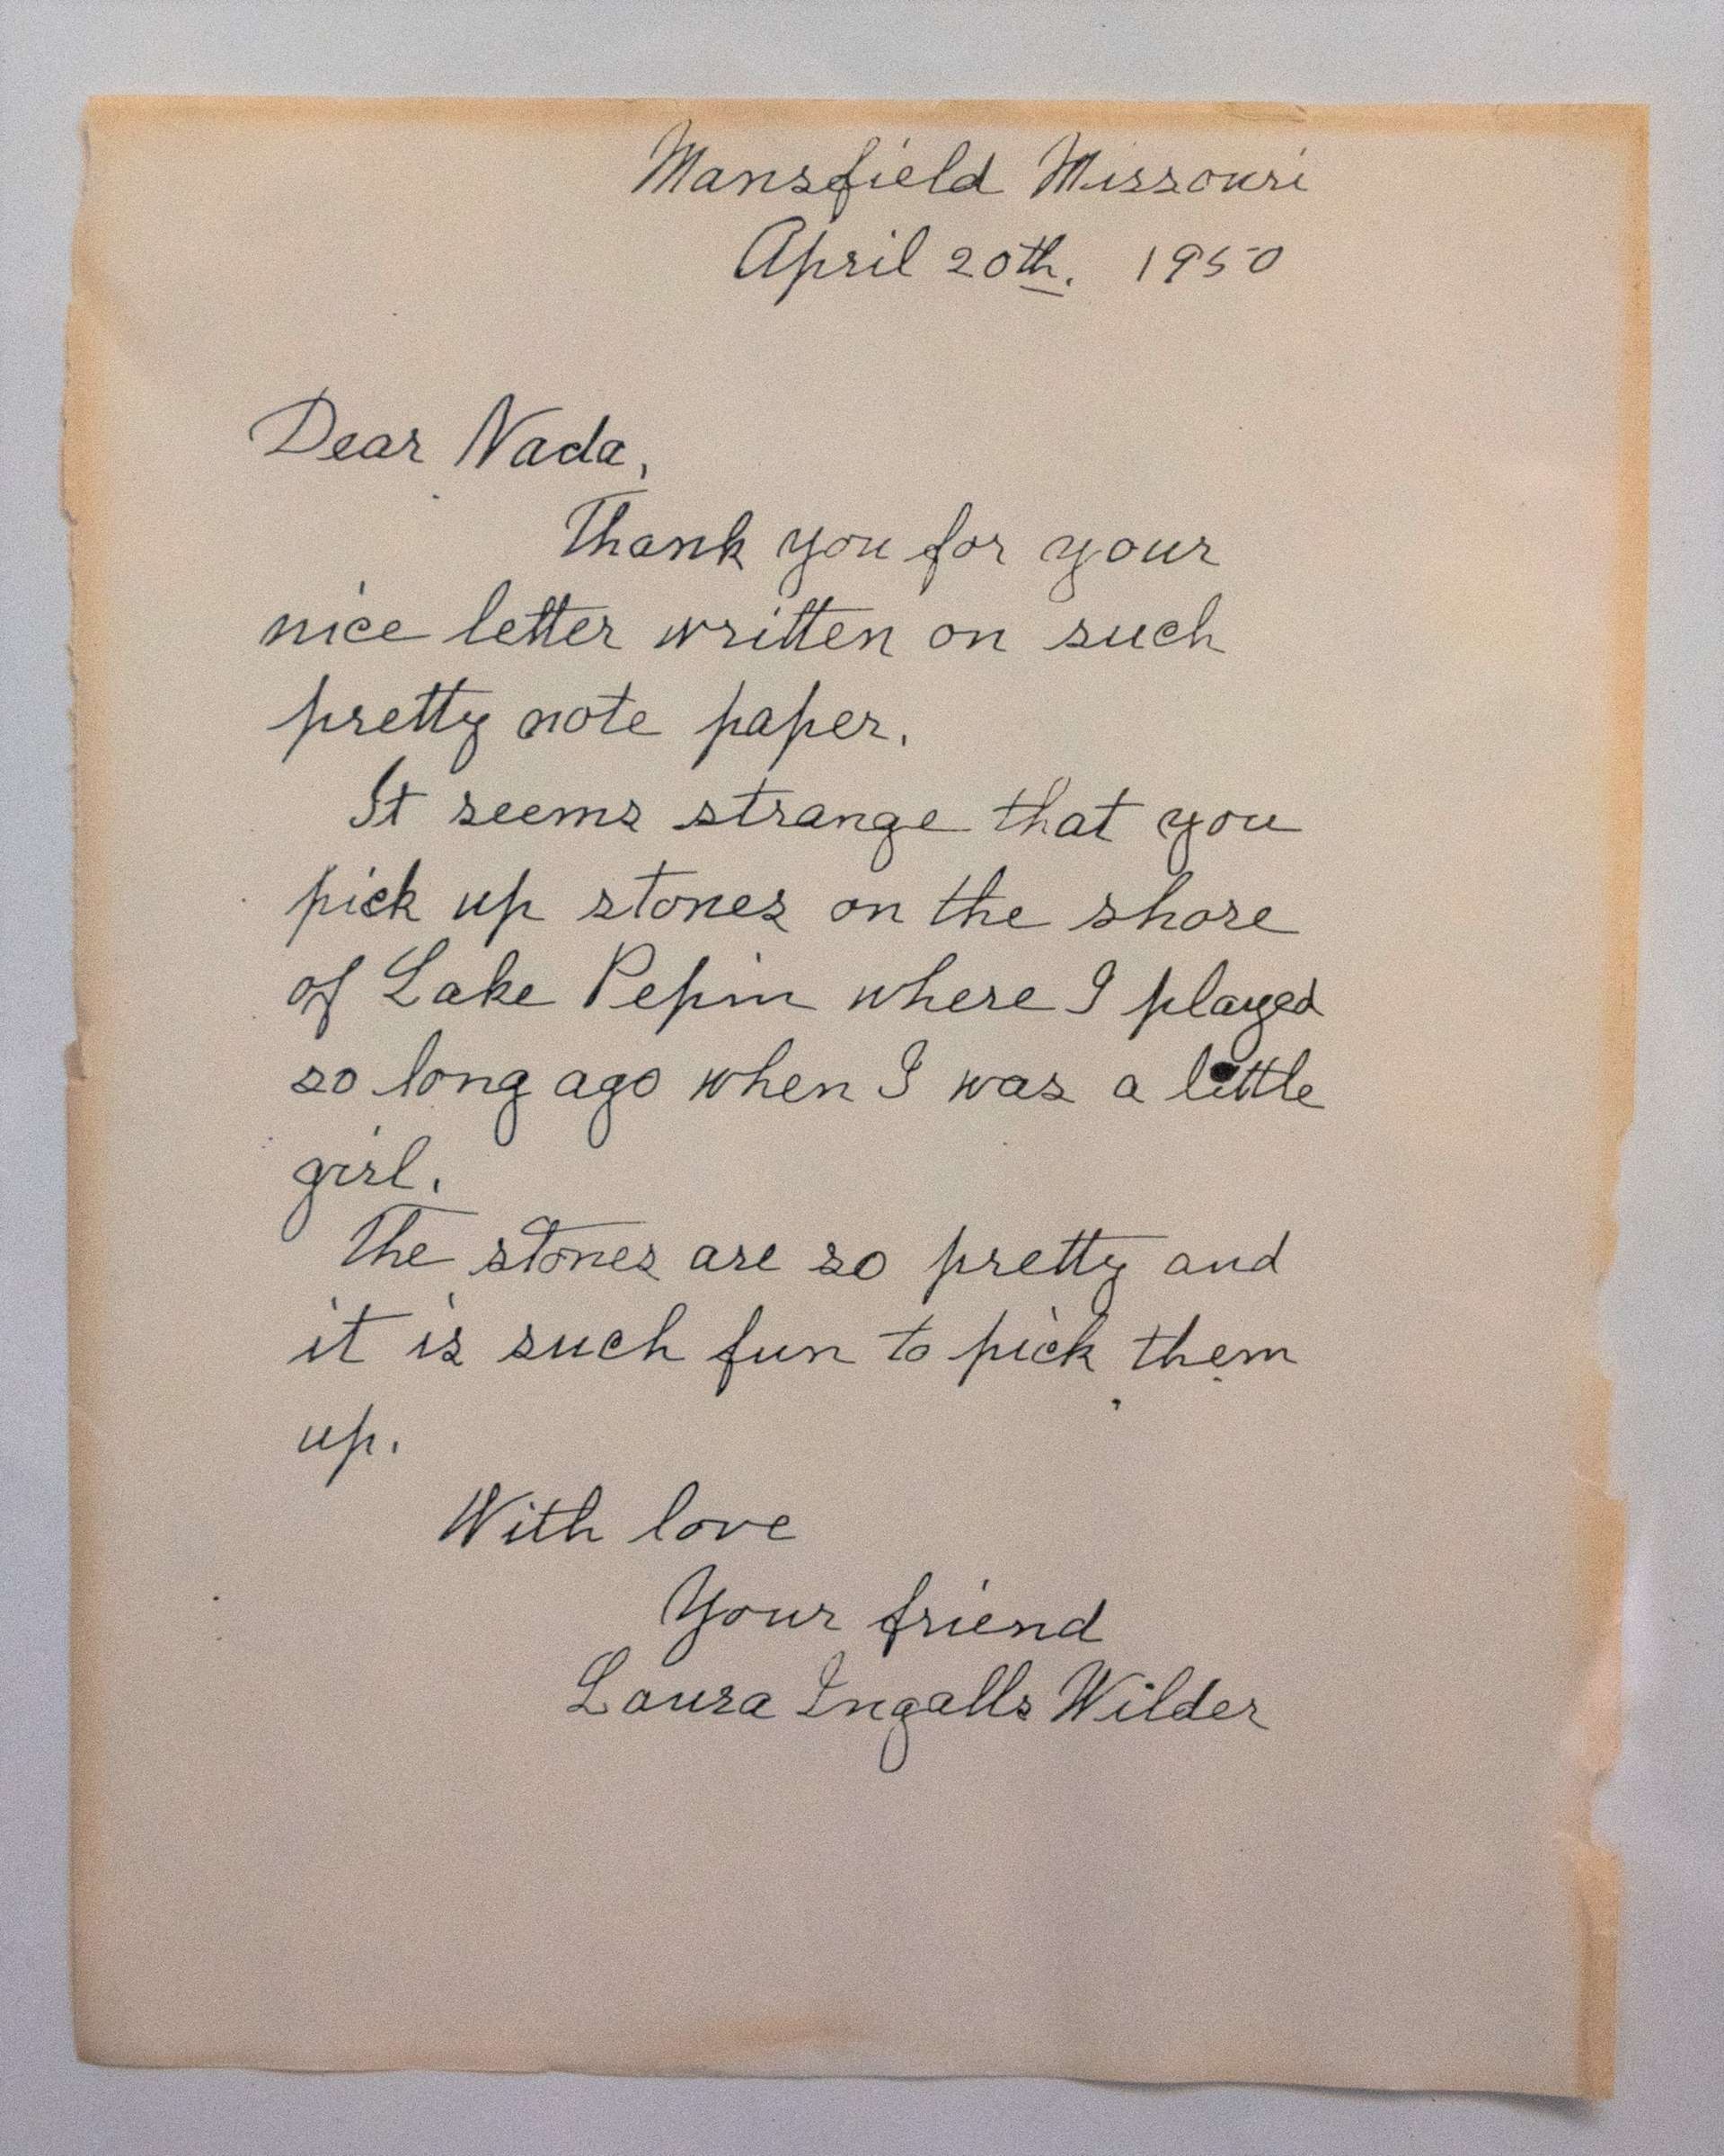 Mansfield Missouri
April 20th. 1950
Dear Nada,
Thank you for your
nice letter written on such
pretty note paper.
It seems strange that you
pick up stones on the shore
of Lake Pepin where I played
so long ago when I was a little
girl.
The stones are so pretty and
it is such fun to pick them
up.
With love
Your friend
Laura Ingalls Wilder